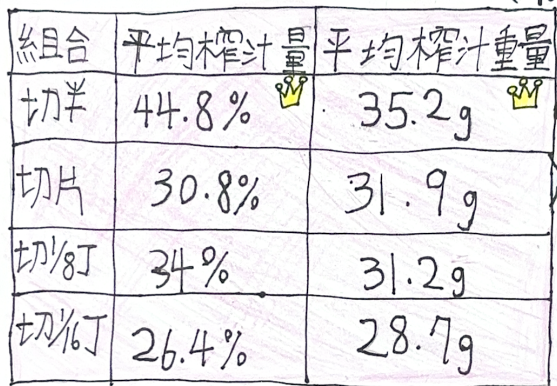 組合 平均榨汁量 平均榨汁重量
切半 44.8% 35.2g
切片 30.8% 31.9g
切1/8丁 34% 31.2g
切1/16丁 26.4% 28.7g